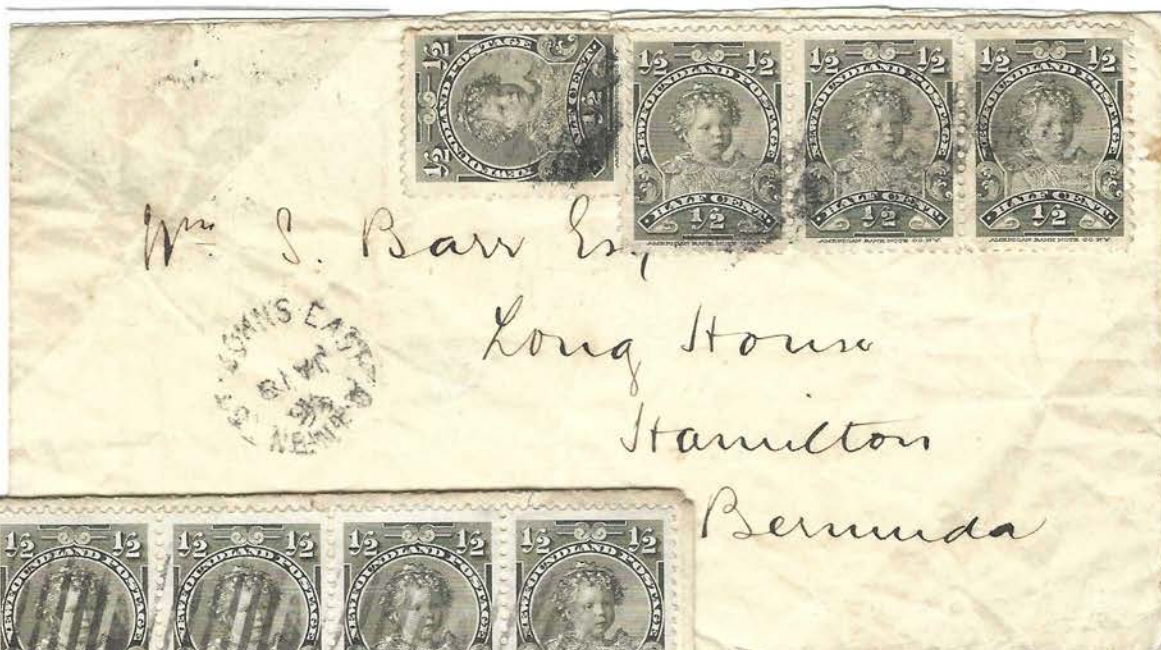 1/2 NEWFOUNDLAND POSTAGE 1/2
HALF CENT
1/2 1/2
NEWFOUNDLAND POSTAGE
HALF CENT
1/2
AMERICAN BANK NOTE CO. N.Y.
1/2 1/2
NEWFOUNDLAND POSTAGE
HALF CENT
1/2
AMERICAN BANK NOTE CO. N.Y.
1/2 1/2
NEWFOUNDLAND POSTAGE
HALF CENT
1/2
AMERICAN BANK NOTE CO. N.Y.
Wm S. Barr Esq,
Long House
Hamilton
Bermuda
ST. JOHN'S EAST
JA 18
1/2 1/2
NEWFOUNDLAND POSTAGE
1/2 1/2
NEWFOUNDLAND POSTAGE
1/2 1/2
NEWFOUNDLAND POSTAGE
1/2 1/2
NEWFOUNDLAND POSTAGE